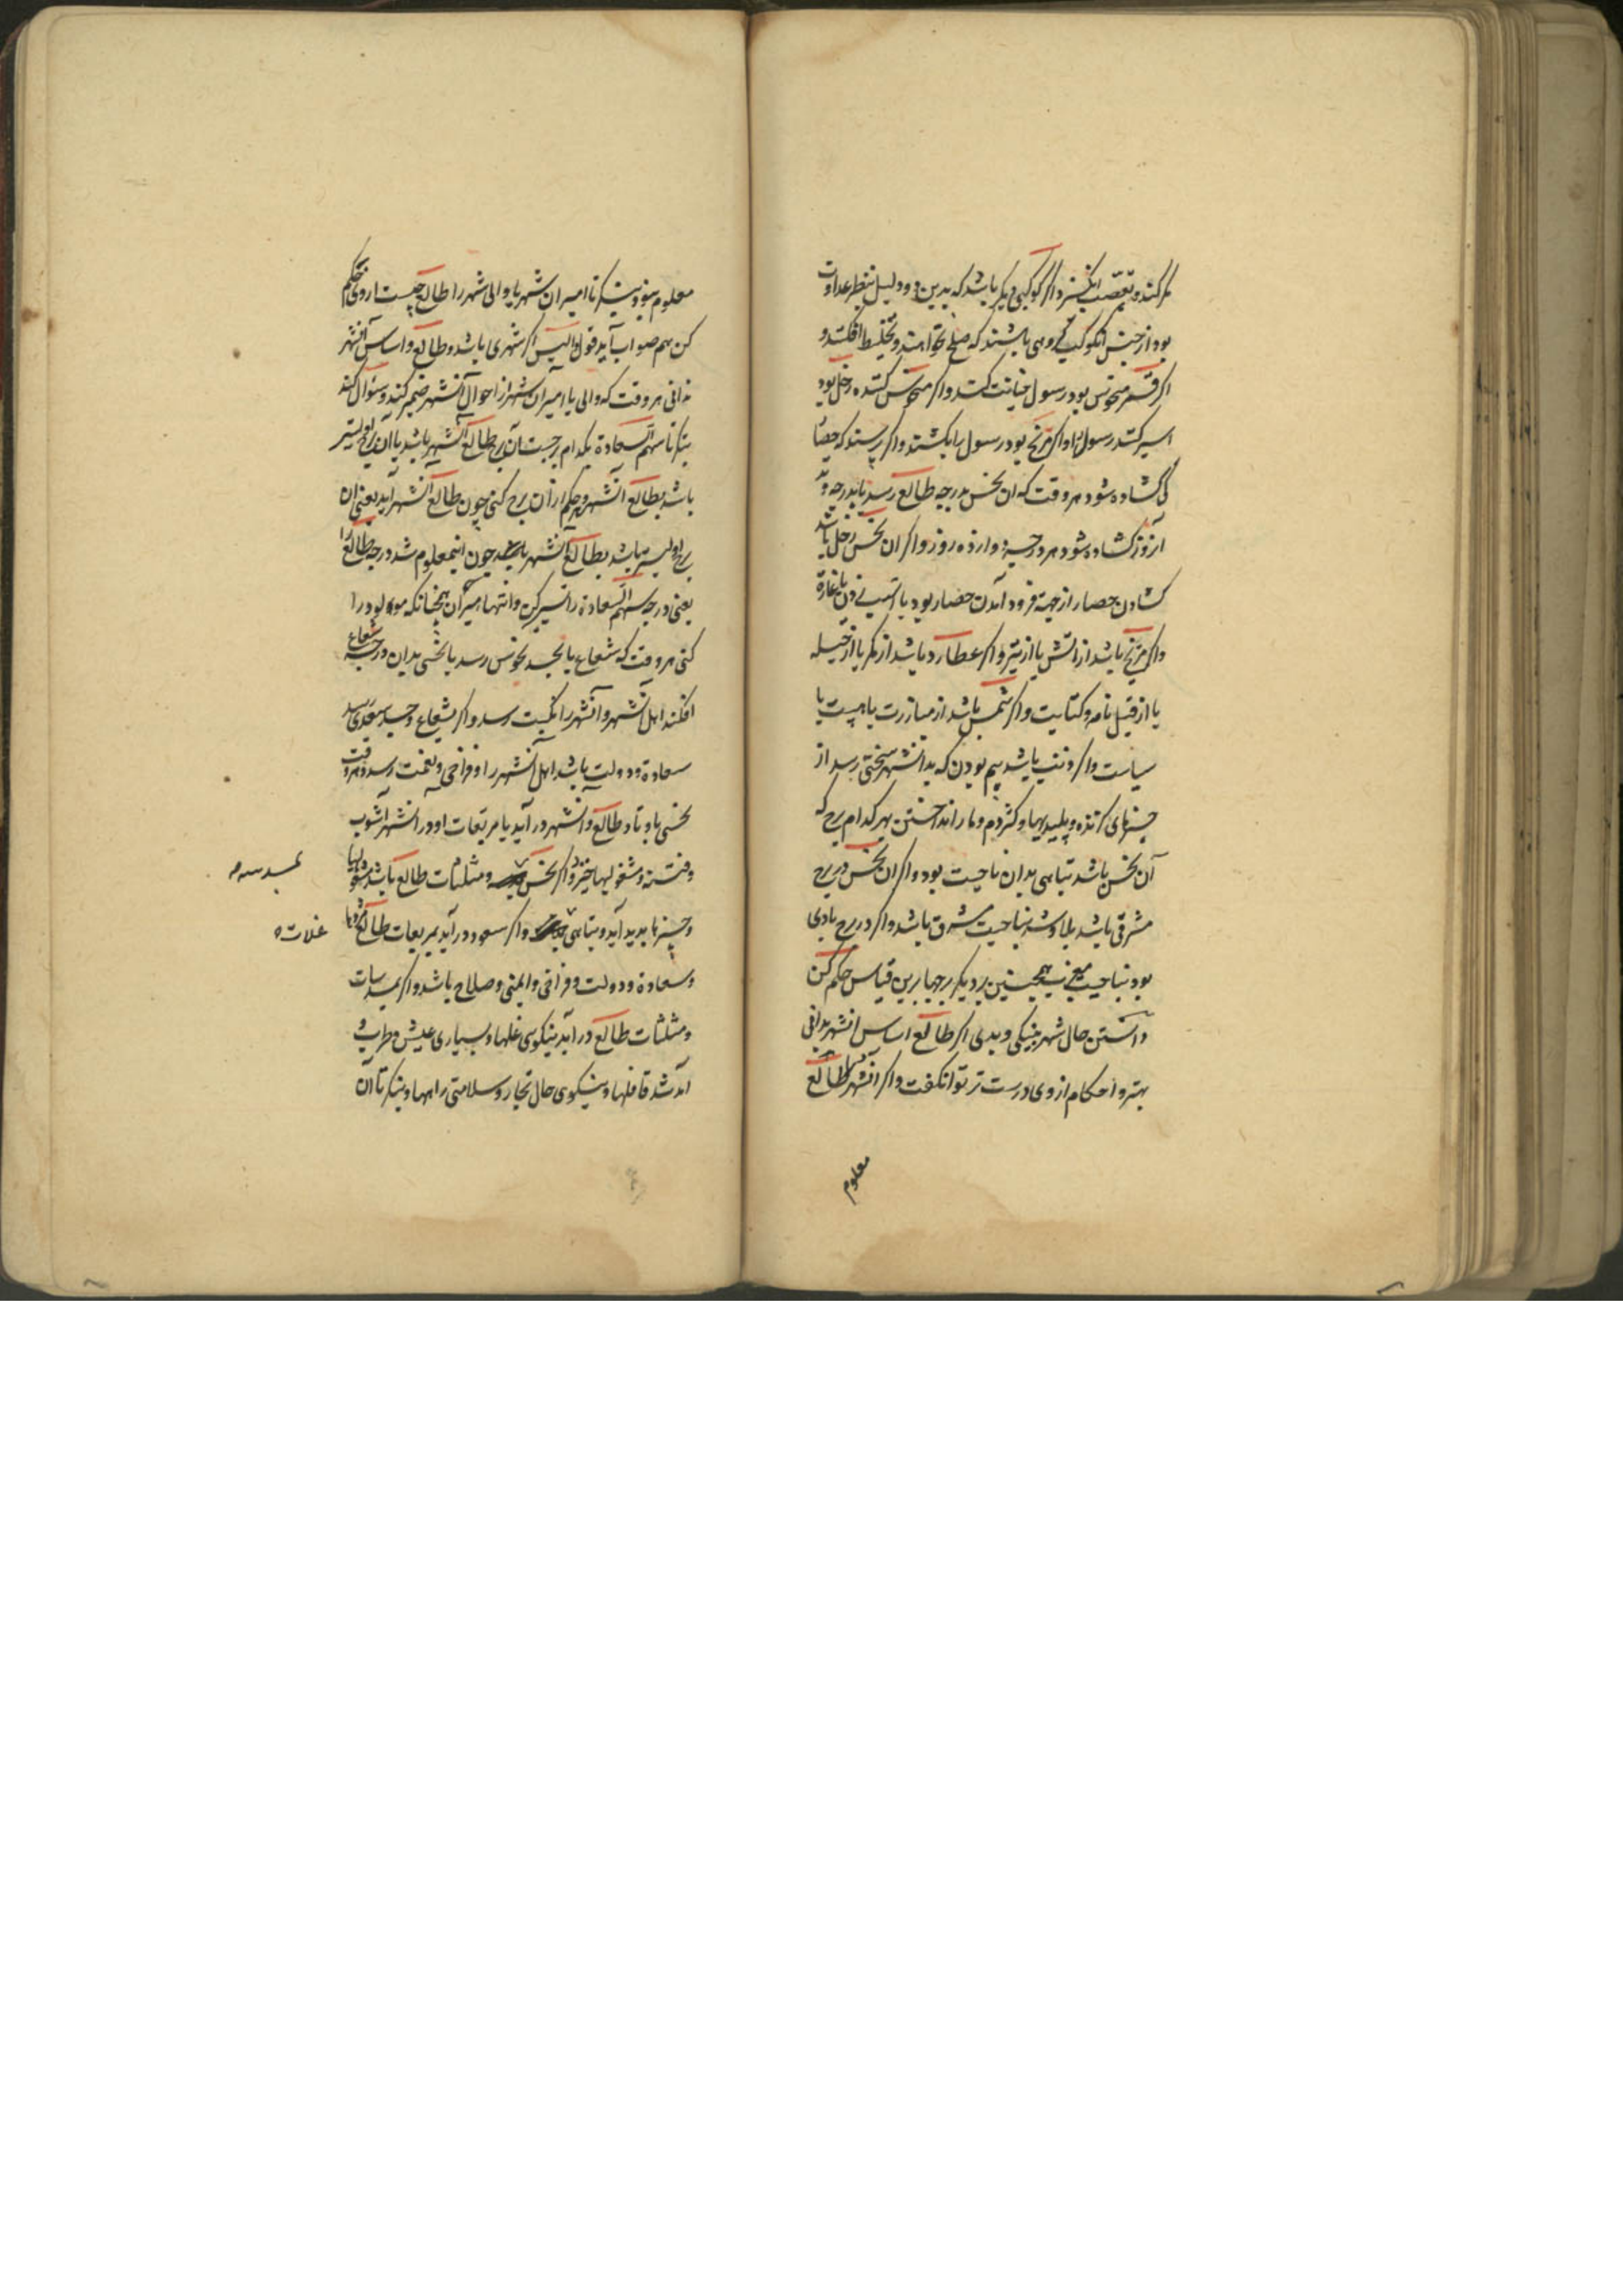 مکر کنند و تعصب انگیزد و اگر کوکبی دیگر باشد که بدین دو دلیل بنظر عداوت
بود از جنس آنکوکب کروهی باشند که صلح نخواهند و تخلیط افکنند و
اگر قمر منحوس بود رسول خیانت کند و اگر منحوس کننده زحل بود
اسیر کنند رسول را و اگر مریخ بود رسول را بکشند و اگر پرسند که حصار
کی کشاده شود هر وقت که ان نحس بدرجه طالع رسد یا بدرجه وتد
آنروز کشاده شود هر درجه دوازده روز و اگر ان نحس زحل باشد
کشادن حصار از جهة فرود آمدن حصار بود یا
واگر مریخ باشد از اتش یا از تیر و اگر عطارد باشد از مکر یا از حیله
یا از قبیل نامه و کتابت و اگر شمس باشد از مبارزت یا هیبت یا
سیاست و اگر ذنب باشد بیم بودن که بدانشهر سختی رسد از
چیزهای کزنده و پلیدیها و کژدم و مار انداختن بهر کدام برج که
آن نحس باشد تباهی بدان ناحیت بود و اگر ان نحس در برج
مشرقی باشد بلا و شدة بناحیت مشرق باشد و اگر در برج بادی
بود بناحیت مغرب همچنین بر دیگر برجها برین قیاس حکم کن
دانستن حال شهر بنیکی و بدی اگر طالع اساس انشهر بدانی
بهتر و احکام از وی درست تر توانکفت و اگر آنشهر را طالع
معلوم
معلوم نبود بنگر تا امیر ان شهر یا والی شهر را طالع چیست از وی حکم
کن هم صواب آید قول والیس اگر شهری باشد و طالع و اساس آنشهر
ندانی هر وقت که والی یا امیر ان شهر از احوال آنشهر ضمیر کند و سؤال کند
بنکر تا سهم السعادة بکدام برجست آن برج طالع آنشهر باشد یا آن برج
باشد بطالع آنشهر و حکم از آن برج کنی چون طالع آنشهر آید یعنی ان
برج اولیتر باشد بطالع آنشهر چون اینمعلوم شد درجه طالع را
یعنی درجه سهم السعادة را تسییر کن و انتها میران همچنانکه مولود را
کنی هر وقت که شعاع یا بجسد نحوس رسد یا نحسی بدان درجه شعاع
افکند اهل آنشهر و آنشهر را نکبت رسد و اگر بشعاع و جسد سعدی رسد
سعادة و دولت باشد اهل آنشهر را و فراخی و نعمت رسد و هر وقت
نحسی باوتاد طالع آنشهر در آید یا مربعات او در آنشهر آشوب
و فتنه و مشغولیها خیزد و اگر نحس و مثلثات طالع باشد
و چیزها پدید آید و تباهی و اگر سعود در آید بمربعات طالع
و سعادة و دولت و فراخی و ایمنی و صلاح باشد و اگر بمسدسات
و مثلثات طالع در آید نیکوی غلها و بسیاری عیش و طرب و
آمد شد قافلها و نیکوی حال تجار و سلامتی راهها و بنکر تا آن
غلات